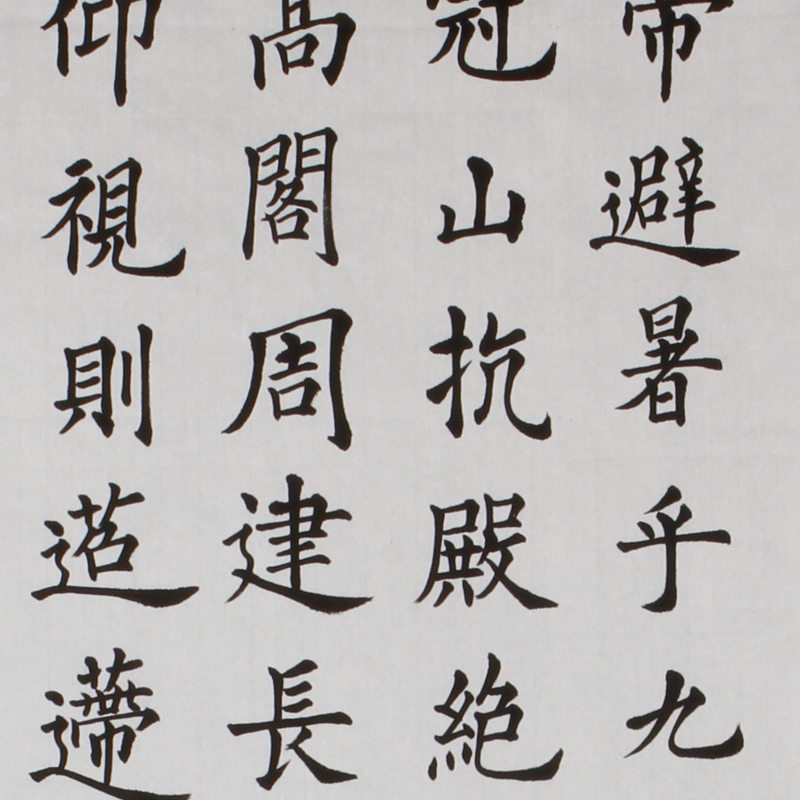 帝避暑乎九
冠山抗殿絶
高閣周建長
仰視則迢遰